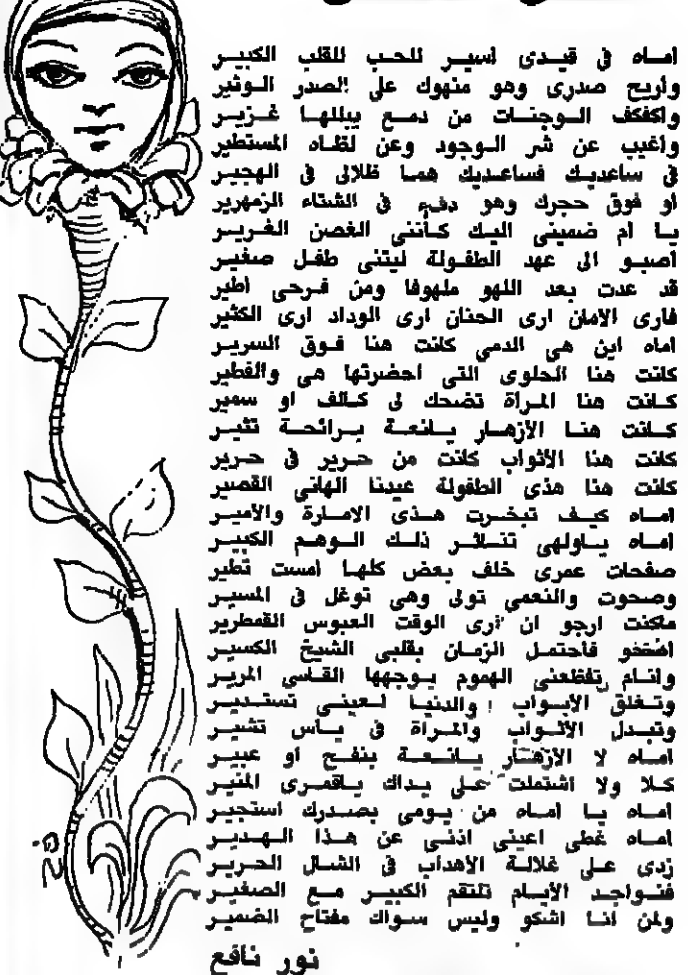 أماه في قيدى أسير للحب للقلب الكبير
وأريح صدرى وهو منهوك على الصدر الوثير
وأكفكف الوجنات من دمع يبللها غزير
وأغيب عن شر الوجود وعن لظاه المستطير
في ساعديك فساعديك هما ظلالى في الهجير
أو فوق حجرك وهو دفء في الشتاء الزمهرير
يا أم ضمينى اليك كأننى الغصن الغرير
أصبو الى عهد الطفولة ليتنى طفل صغير
قد عدت بعد اللهو ملهوفا ومن فرحى أطير
فأرى الامان ارى الحنان ارى الوداد ارى الكثير
اماه اين هى الدمى كانت هنا فوق السرير
كانت هنا الحلوى التى احضرتها هى والفطير
كانت هنا المرآة تضحك لى كالف او سمير
كانت هنا الازهار يانعة برائحة تثير
كانت هنا الأثواب كانت من حرير في حرير
كانت هنا هذى الطفولة عيدنا الهانى القصير
اماه كيف تبخرت هذى الامارة والأمير
اماه ياولهى تناثر ذلك الوهم الكبير
صفحات عمرى خلف بعض كلها امست تطير
وصحوت والنعمى تولى وهى توغل في المسير
ماكنت ارجو ان أرى الوقت العبوس القمطرير
فأحتمل الزمان بقلبى الشيخ الكسير
وانام تفظعنى الهموم يوجهها القاسى المرير
وتغلق الأبواب والدنيا لعينى تستدير
وتبدل الأثواب والمرآة في يأس تشير
اماه لا الازهار يانعة بنفح أو عبير
كلا ولا اشتملت على يداك ياقمرى المنير
اماه يا اماه من يومى بصدرك استجير
اماه غطى اعينى اذنى عن هذا الهدير
زدى على غلالة الأهداب في الشال الحرير
فنواجد الأيام تلتقم الكبير مع الصغير
ولمن انا اشكو وليس سواك مفتاح الضمير
نور نافع